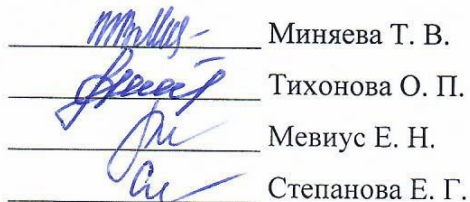 Миняева Т. В.
Тихонова О. П.
Мевиус Е. Н.
Степанова Е. Г.